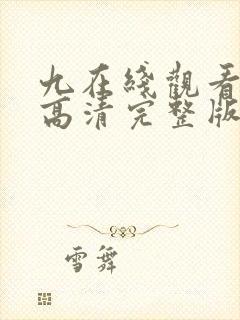 九在綫觀看
高清完整版
雪舞